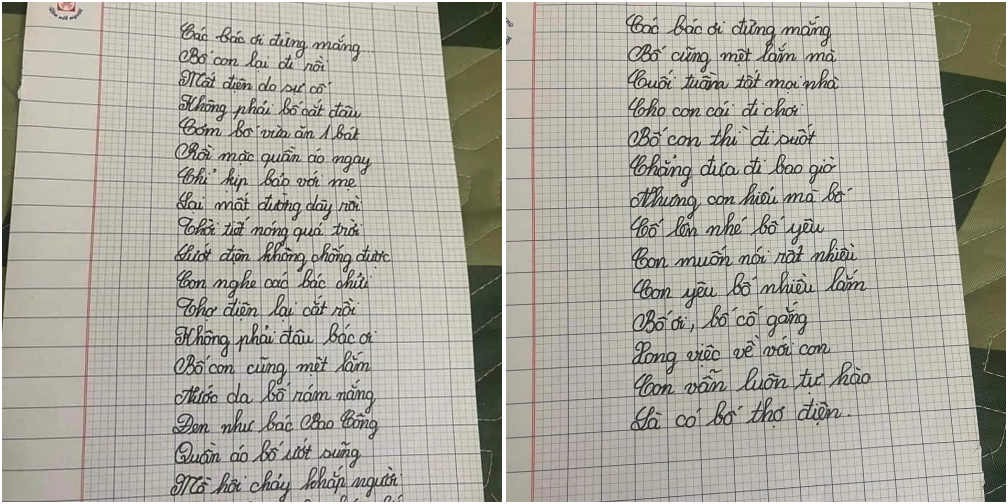 Các bác ơi đừng mắng...
Bố con lại đi rồi
Mất điện do sự cố
Không phải bố cắt đâu
Cơm bố vừa ăn 1 bát
Rồi mặc quần áo ngay
Chỉ kịp bảo với mẹ
Lại mất đường dây rồi
Thời tiết nóng quá trời
Lướt điện không chống được
Con nghe các bác chửi
Thợ điện lại cắt rồi
Không phải đâu bác ơi
Bố con cũng mệt lắm
Nước da bố rám nắng
Đen như bác Bao Công
Quần áo bố ướt sũng
Mồ hôi chảy khắp người
Các bác ơi đừng mắng
Bố cũng mệt lắm mà
Cuối tuần tất mọi nhà
Cho con cái đi chơi
Bố con thì đi suốt
Chẳng đưa đi bao giờ
Nhưng con hiểu mà bố
Cố lên nhé bố yêu
Con muốn nói rất nhiều
Con yêu bố nhiều lắm
Bố ơi, bố cố gắng
Xong việc về với con
Con vẫn luôn tự hào
Là có bố thợ điện.